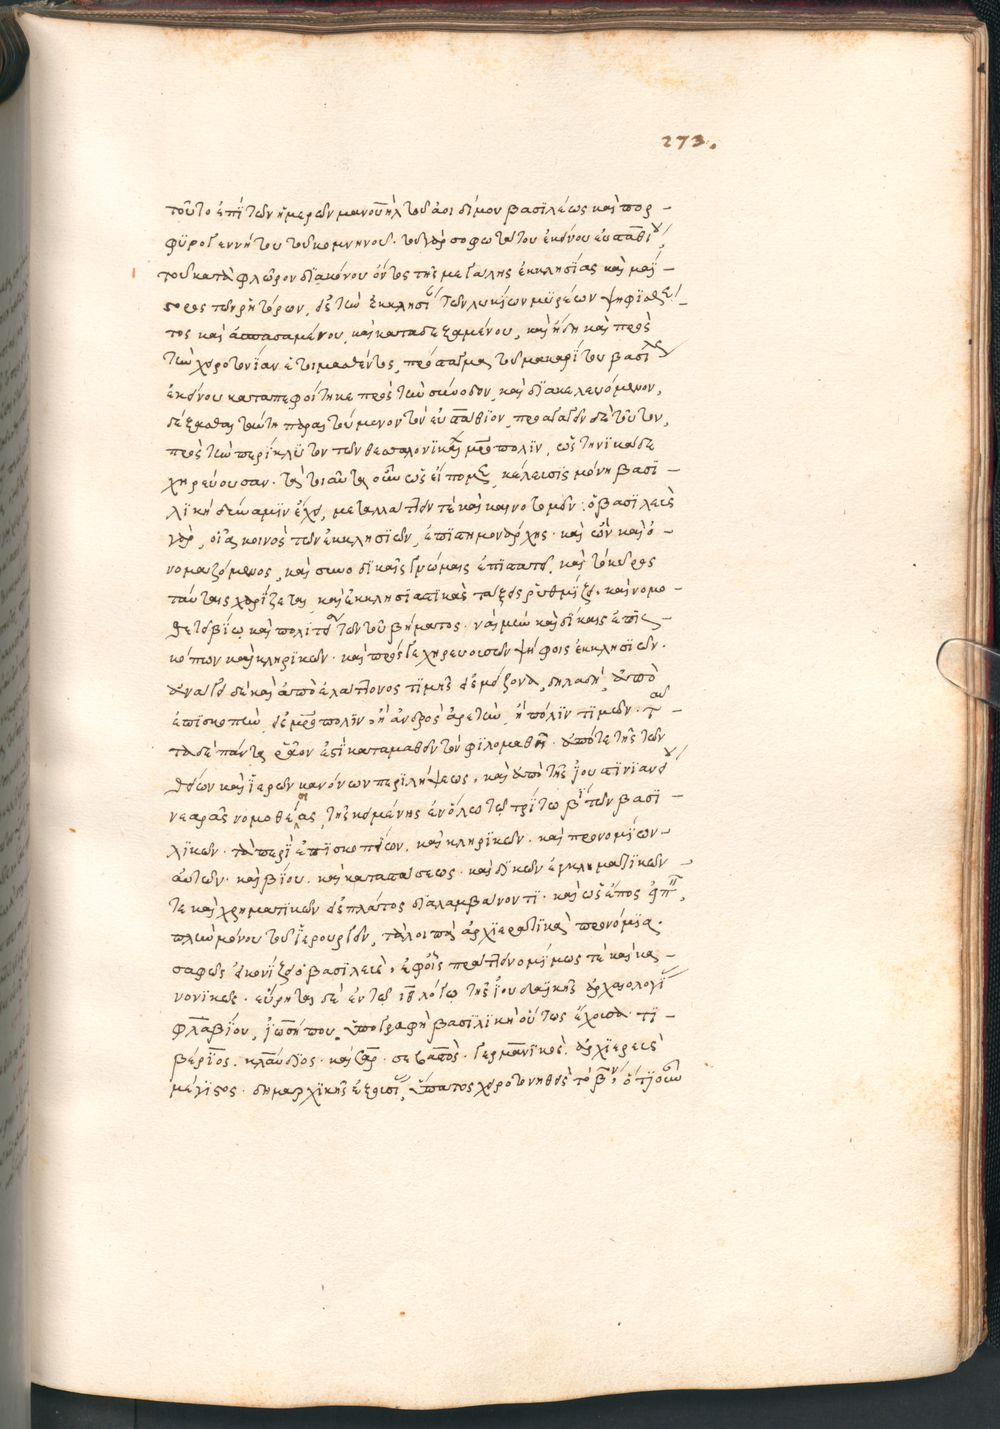 273.
τοῦτο ἐπὶ τῶν ἡμερῶν μανουὴλ τοῦ ἀοιδίμου βασιλέως καὶ πορ-
φυρογεννήτου τοῦ κομνηνοῦ· τοῦ γὰρ σοφωτάτου ἐκείνου εὐσταθίου,
τοῦ κατὰ φλῶρον διακόνου ὄντος τῆς μεγάλης ἐκκλησίας καὶ μαΐ-
στορος τῶν ῥητόρων, εἰς τὴν ἐκκλησίαν τῶν λυκίων μυρέων ψηφισθέν-
τος καὶ ἀσπασαμένου, καὶ καταδεξαμένου, καὶ ἤδη καὶ πρὸς
τὴν χειροτονίαν ἑτοιμασθέντος, πρόσταγμα τοῦ μακαρίτου βασιλέως
ἐκείνου καταπεφοίτηκε πρὸς τὴν σύνοδον, καὶ διακελευόμενον,
τὸν εὐστάθιον, προαγαγεῖν δὲ τοῦτον,
πρὸς τὴν περίκλυτον τῶν θεσσαλονικέων μητρόπολιν, ὡς τηνικάδε
χηρεύουσαν· τὰ τοιαῦτα οὖν ὡς εἴπομεν, κέλευσις μόνη βασι-
λικὴ δύναμιν ἔχει, μεταλλάττειν τὲ καὶ καινοτομεῖν· ὁ βασιλεὺς
γὰρ, οἷα κοινὸς τῶν ἐκκλησιῶν, ἐπιστημονάρχης· καὶ ὢν καὶ ὀ-
νομαζόμενος, καὶ συνοδικαῖς γνώμαις ἐπιστατεῖ, καὶ τὸ κύρος
ταύταις χαρίζεται, καὶ ἐκκλησιαστικὰς τάξεις ῥυθμίζει· καὶ νομο-
θετεῖ βίῳ καὶ πολιτείᾳ τῶν τοῦ βήματος· ναὶ μὴν καὶ δίκαις ἐπισ-
κόπων καὶ κληρικῶν· καὶ πρός γε χηρευουσῶν ψήφοις ἐκκλησιῶν·
ἀνάγει δὲ καὶ ἀπὸ ἐλάττονος τιμῆς εἰς μείζονα, δηλαδὴ, ἀπὸ
ἐπισκοπῶν εἰς μητρόπολιν· ἢ ἀνδρὸς ἀρετὴν, ἢ πόλιν τιμῶν· ταῦ-
τα δὲ πάντα ῥᾷον ἐστὶ καταμαθεῖν τὸν φιλομαθῆ· ἀπό τε τῆς τῶν
θείων καὶ ἱερῶν κανόνων περιλήψεως, καὶ ἀπὸ τῆς ἰουστινιανείου
νεαρᾶς νομοθεσίας, τῆς κειμένης ἐν ὅλῳ τῷ τρίτῳ βιβλίῳ τῶν βασι-
λικῶν· τὰ περὶ ἐπισκοπείων, καὶ κληρικῶν· καὶ προνομίων
αὐτῶν· καὶ βίου· καὶ καταστάσεως· καὶ δικῶν ἐγκληματικῶν
τε καὶ χρηματικῶν εἰς πλάτος διαλαμβάνοντι· καὶ ὡς ἔπος εἰπεῖν,
πλὴν μόνου τοῦ ἱερουργεῖν, τὰ λοιπὰ ἀρχιερατικὰ προνόμια·
σαφῶς εἰκονίζει ὁ βασιλεὺς, ἐφ' οἷς πράττει νομίμως τὲ καὶ κα-
νονικῶς· εὕρηται δὲ ἐν τῷ ιθ λόγῳ τῆς ἰουδαϊκῆς ἀρχαιολογίας
φλαβίου, ἰωσήπου, ὑπογραφὴ βασιλικὴ οὕτως ἔχουσα· τι-
βέριος, κλαύδιος· καῖσαρ· σεβαστὸς· γερμανικὸς, ἀρχιερεὺς
μέγιστος· δημαρχικῆς ἐξουσίας, ὕπατος χειροτονηθεὶς τὸ βον, ὅτι οὖν